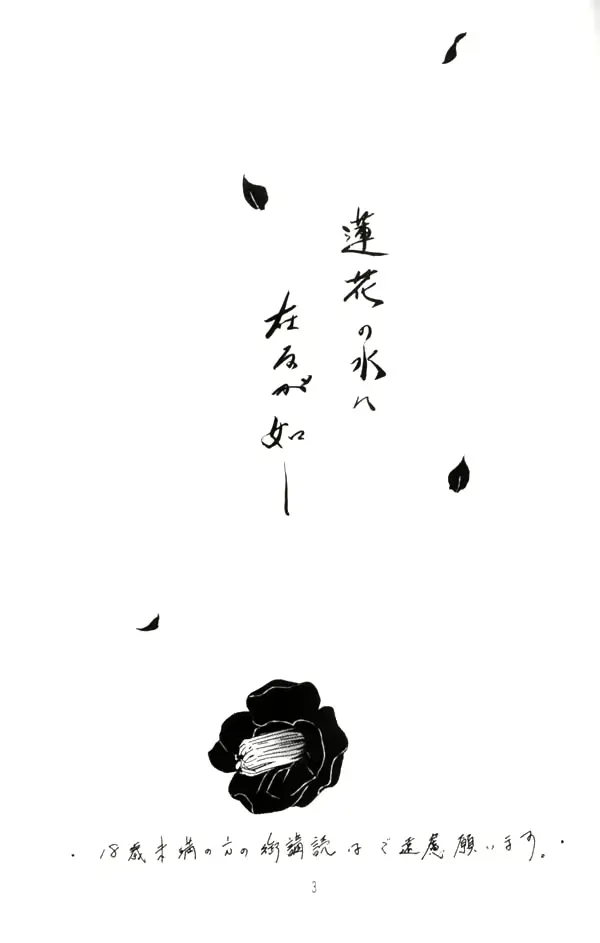 蓮花の水に
在るが如し
・18歳未満の方の御講読はご遠慮願います。・
3